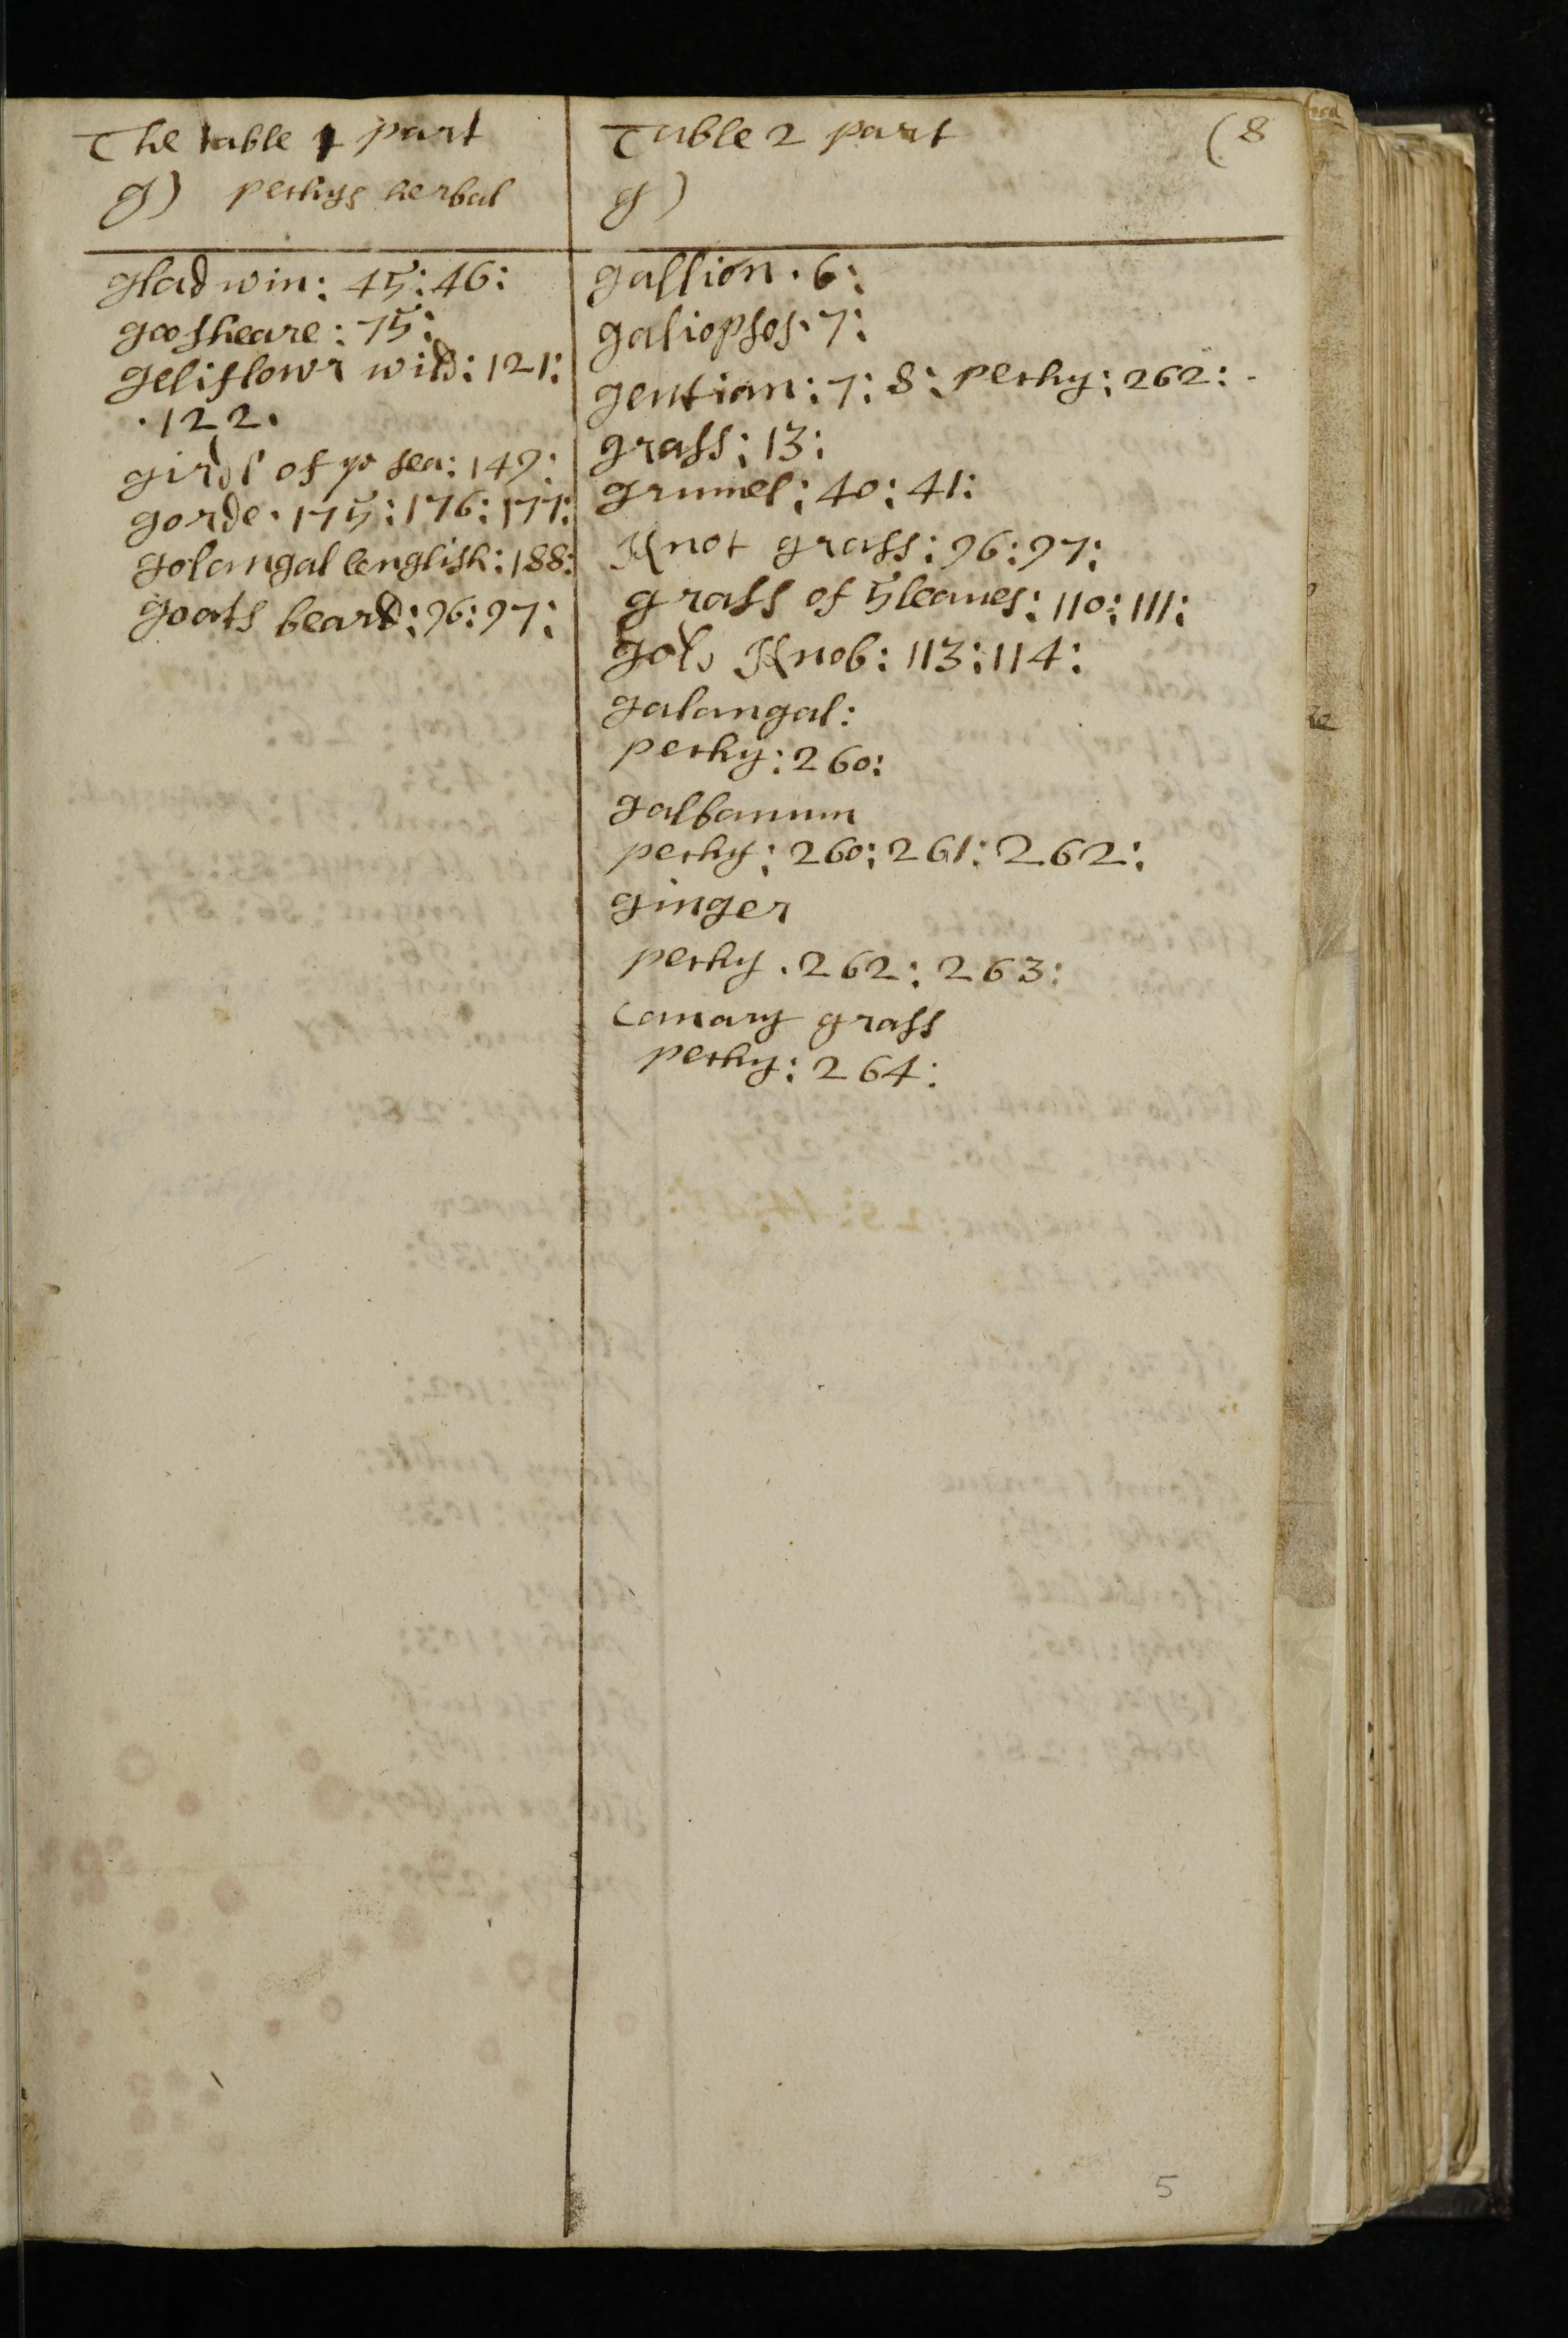 The table 1 part
g) pethys herbal
gladwin: 45: 46:
goosheare: 75:
geliflowr wild: 121:
. 122.
girdl of ye sea: 149:
gorde. 175: 176: 177:
golangal english: 188:
goats beard: 96: 97:
Table 2 part (8
g)
gallion. 6:
galiopsos. 7:
gentian: 7: 8: pethy: 262:
grass: 13:
grumel: 40: 41:
Knot grass: 96: 97:
grass of 5 leaues: 110: 111:
gold Knob: 113: 114:
galangal:
pethy: 260:
galbanum
pethy: 260: 261: 262:
ginger
pethy. 262: 263:
canary grass
pethy: 264:
5